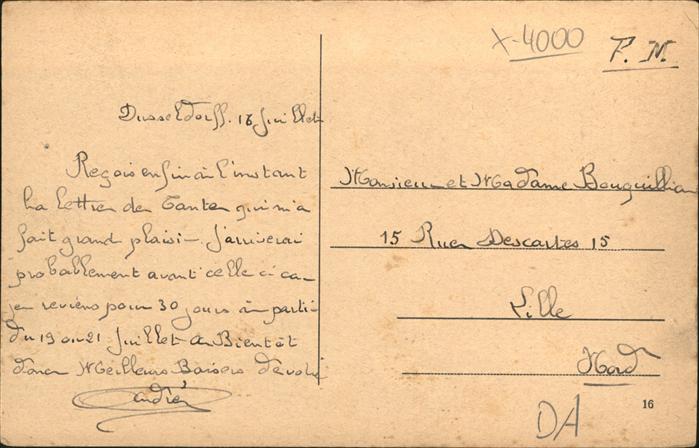 X-4000
F.M.
Dusseldorff. 18 Juillet
Reçois enfin à l'instant
la lettre de Tante qui m'a
fait grand plaisir. J'arriverai
probablement avant celle ci car
je reviens pour 30 jours à parti
du 19 ou 21 Juillet a Bientôt
donc Meilleurs Baisers de votre
André
Monsieur et Madame Bouquillion
15 Rue Descartes 15
Lille
Nord
16
DA